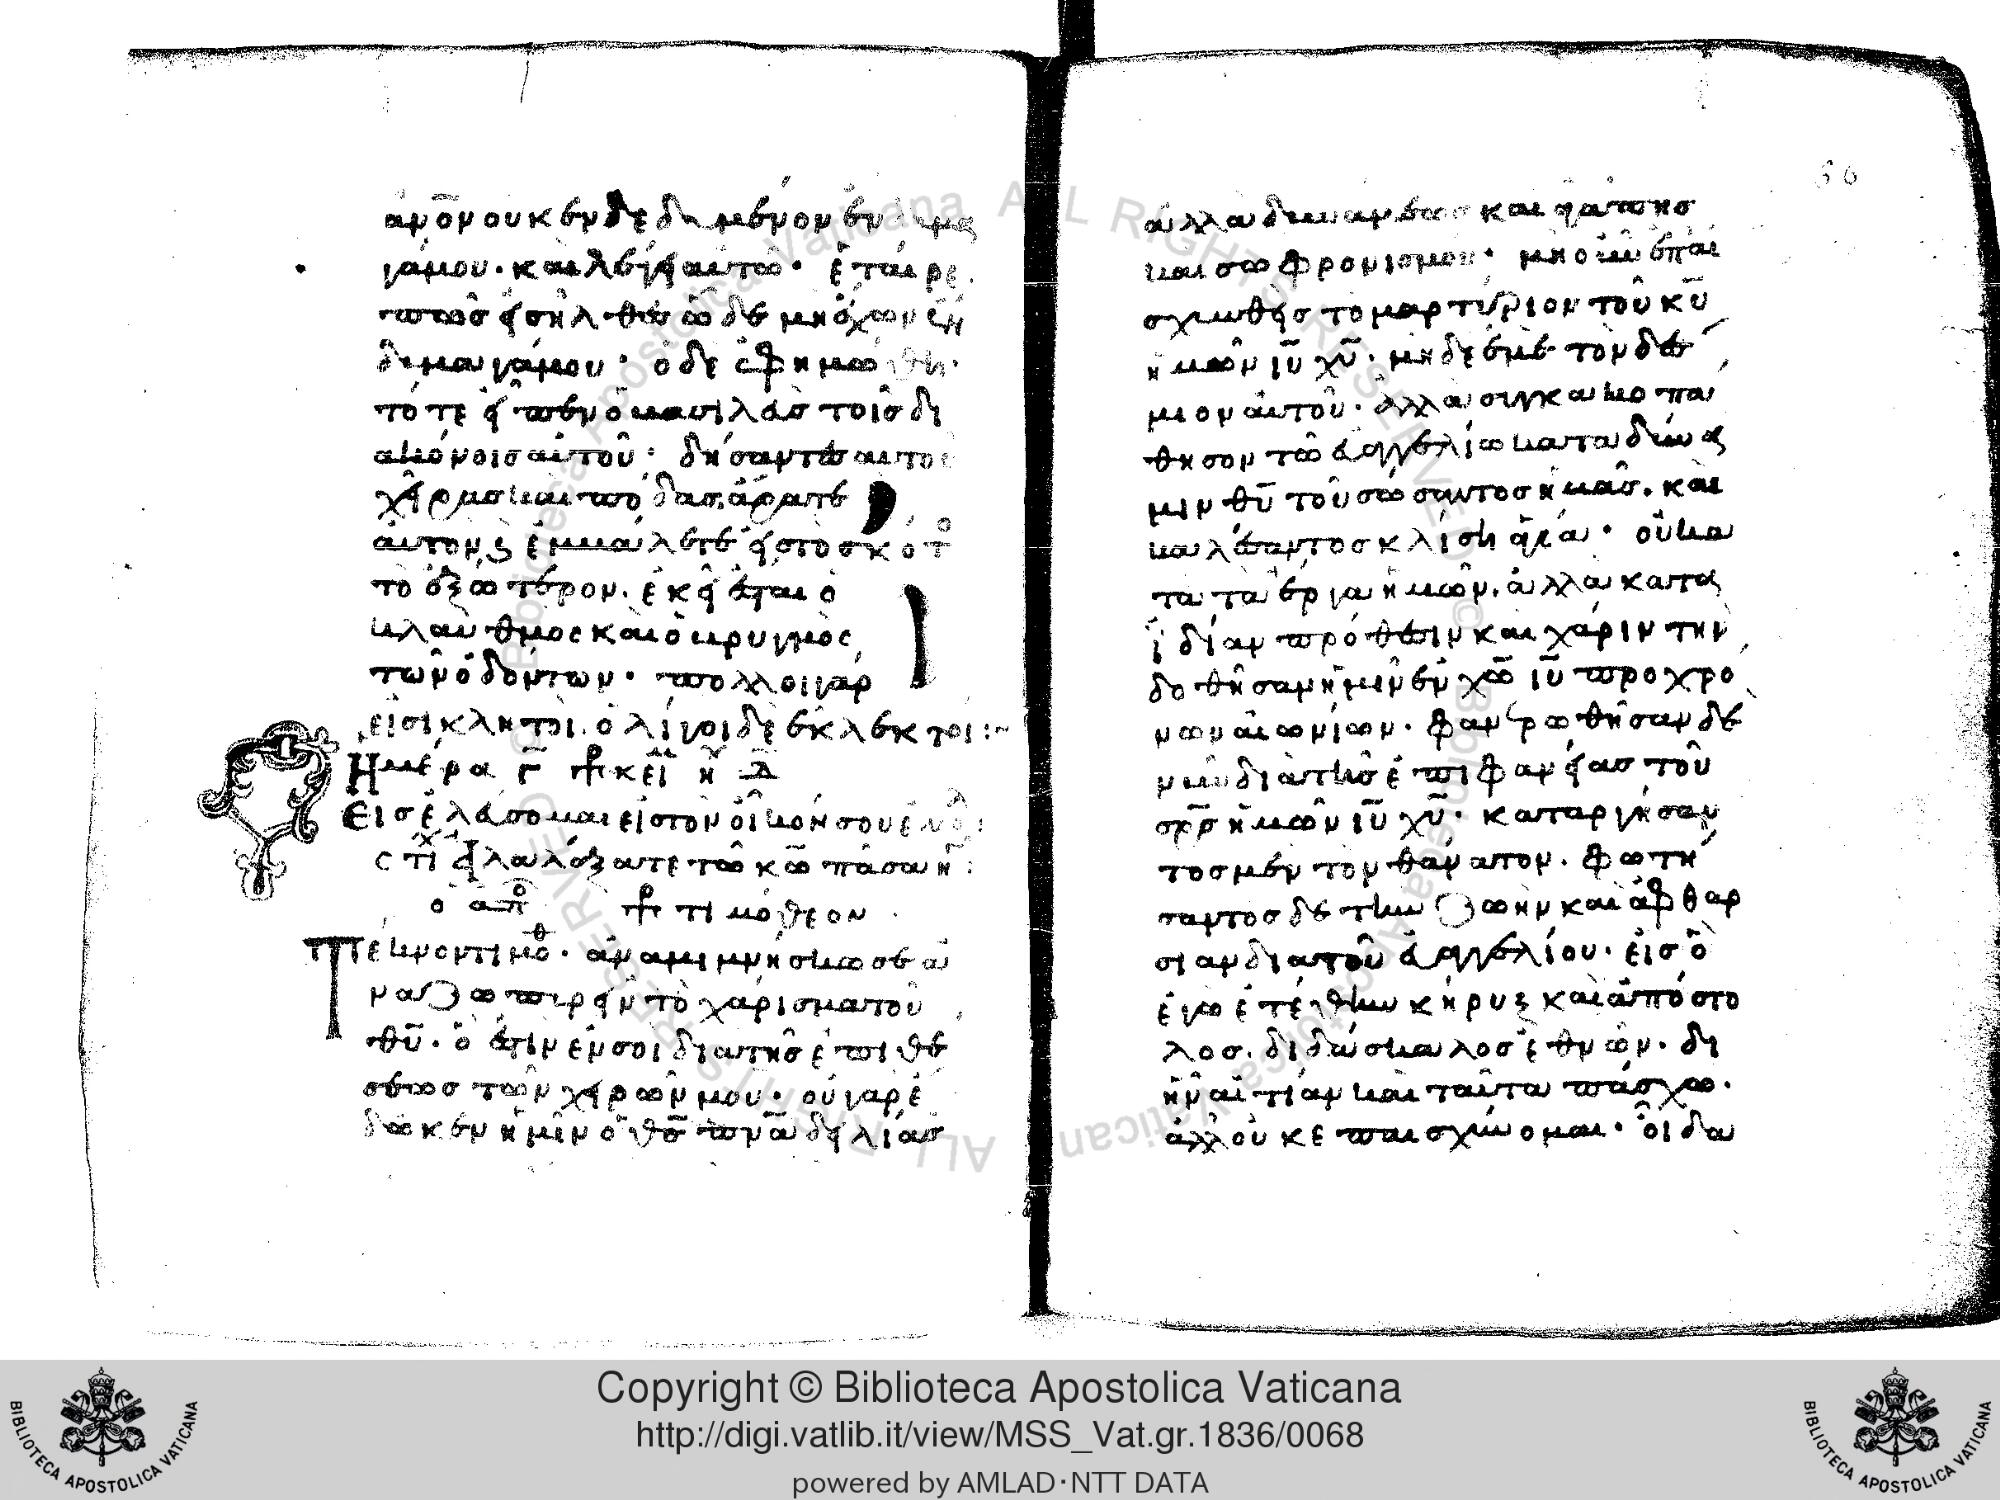 ἀν̅ο̅ν οὐκ ἐνδεδυμένον ἔνδυμα
γάμου· καὶ λέγει αὐτῶ· ἑταῖρε
πῶς εἰσῆλθες ὧδε μὴ ἔχων ἔν
δυμα γάμου· ὁ δὲ ἐφημώθη·
τότε εἶπεν ὁ βασιλεὺς τοῖς δι
ακόνοις αὐτοῦ· δήσαντες αὐτοῦ
χεῖρας καὶ πόδας, ἄρατε
αὐτὸν κ(αὶ) ἐμβάλετε εἰς τὸ σκότο
τὸ ἐξώτερον. ἐκεῖ ἔσται ὁ
κλαυθμὸς καὶ ὁ βρυγμὸς
τῶν ὀδόντων· πολλοὶ γάρ
εἰσι κλητοί. ὀλίγοι δὲ ἐκλεκτοί:~
Ἡμέρα γ̅ πρκεί
Εἰσελεύσομαι εἰς τὸν οἶκόν σου ἐν ὁ
στί ἀλαλάξατε τῶ κ̅ω̅ πᾶσα ἡ
ὁ ἀπο πρ τιμόθεον
Τέκνον τιμόθ· ἀναμιμνήσκω σε ἀ
ναζωπυρεῖν τὸ χάρισμα τοῦ
θ̅υ̅· ὅ ἐστιν ἐν σοὶ διὰ τῆς ἐπιθέ
σεως τῶν χειρῶν μου· οὐ γὰρ ἔ
δωκεν ἡμῖν ὁ θ̅σ̅ π̅ν̅α̅ δειλίας
ἀλλὰ δυνάμεως καὶ ἀγάπης
καὶ σωφρονισμοῦ· μὴ οὖν ἐπαι
σχυνθεὶς τὸ μαρτύριον τοῦ κ̅υ̅
ἡμῶν ι̅υ̅ χ̅υ̅· μηδὲ ἐμὲ τὸν δέσ
μιον αὐτοῦ· ἀλλὰ συγκακοπά
θησον τῶ εὐαγγελίω κατὰ δύνα
μιν θ̅υ̅ τοῦ σώσαντος ἡμᾶς. καὶ
καλέσαντος κλήσει ἁγία· οὐ κα
τὰ τὰ ἔργα ἡμῶν, ἀλλὰ κατ'
ἰδίαν πρόθεσιν καὶ χάριν τὴν
δοθεῖσαν ἡμῖν ἐν χ̅ω̅ ι̅υ̅ πρὸ χρό
νων αἰωνίων· φανερωθεῖσαν δὲ
νῦν διὰ τῆς ἐπιφανείας τοῦ
σ̅ρ̅ς ἡμῶν ι̅υ̅ χ̅υ̅· καταργήσαν
τος μὲν τὸν θάνατον. φωτί
σαντος δὲ τὴν ζωὴν καὶ ἀφθαρ
σίαν διὰ τοῦ εὐαγγελίου· εἰς ὃ
ἐγὼ ἐτέθην κῆρυξ καὶ ἀπόστο
λος. διδάσκαλος ἐθνῶν· δι'
ἣν αἰτίαν καὶ ταῦτα πάσχω·
ἀλλ' οὐκ ἐπαισχύνομαι· οἶδα
Copyright © Biblioteca Apostolica Vaticana
http://digi.vatlib.it/view/MSS_Vat.gr.1836/0068
powered by AMLAD·NTT DATA